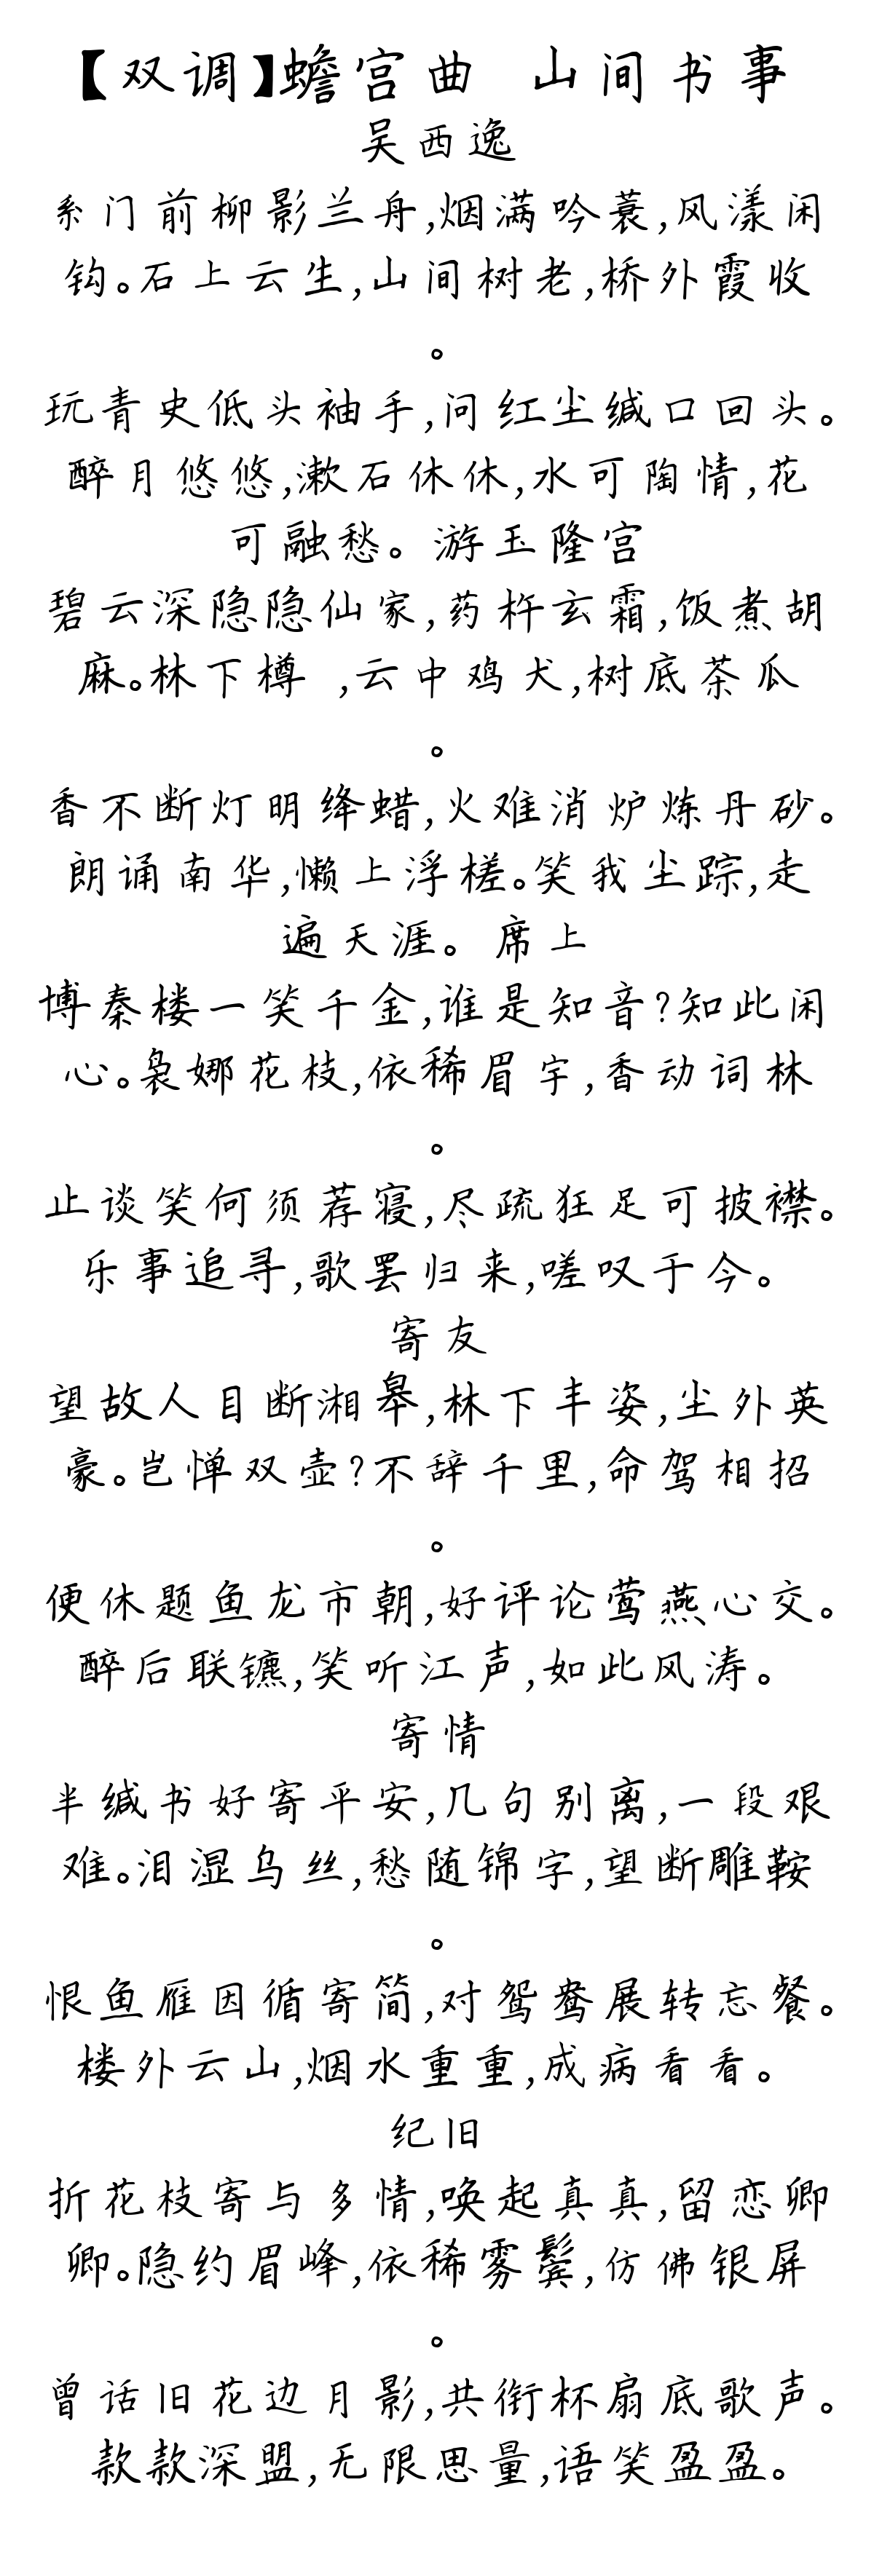 【双调】蟾宫曲 山间书事
吴西逸
系门前柳影兰舟,烟满吟蓑,风漾闲
钩。石上云生,山间树老,桥外霞收
。
玩青史低头袖手,问红尘缄口回头。
醉月悠悠,漱石休休,水可陶情,花
可融愁。游玉隆宫
碧云深隐隐仙家,药杵玄霜,饭煮胡
麻。林下樽 ,云中鸡犬,树底茶瓜
。
香不断灯明绛蜡,火难消炉炼丹砂。
朗诵南华,懒上浮槎。笑我尘踪,走
遍天涯。席上
博秦楼一笑千金,谁是知音?知此闲
心。袅娜花枝,依稀眉宇,香动词林
。
止谈笑何须荐寝,尽疏狂足可披襟。
乐事追寻,歌罢归来,嗟叹于今。
寄友
望故人目断湘皋,林下丰姿,尘外英
豪。岂惮双壶?不辞千里,命驾相招
。
便休题鱼龙市朝,好评论莺燕心交。
醉后联镳,笑听江声,如此风涛。
寄情
半缄书好寄平安,几句别离,一段艰
难。泪湿乌丝,愁随锦字,望断雕鞍
。
恨鱼雁因循寄简,对鸳鸯展转忘餐。
楼外云山,烟水重重,成病看看。
纪旧
折花枝寄与多情,唤起真真,留恋卿
卿。隐约眉峰,依稀雾鬓,仿佛银屏
。
曾话旧花边月影,共衔杯扇底歌声。
款款深盟,无限思量,语笑盈盈。